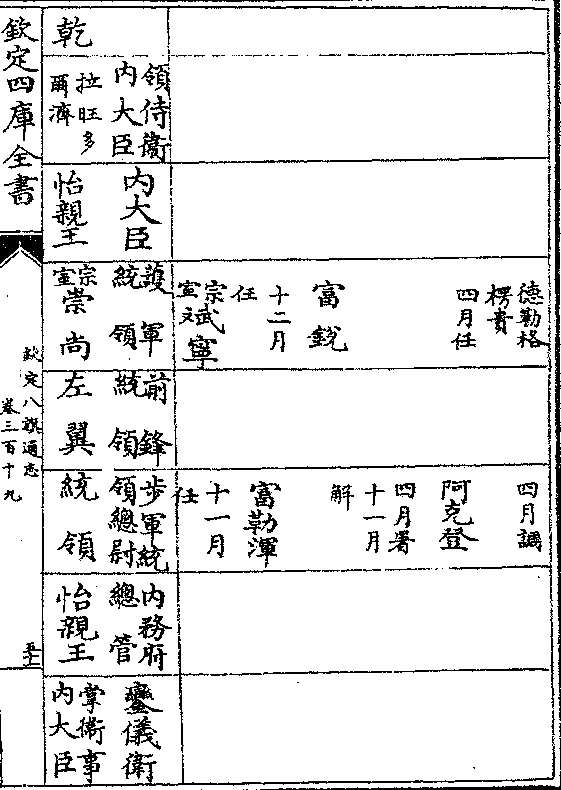 乾
領侍衛
内大臣
拉旺多
爾濟
内大臣
怡親王
德勒格
楞貴
四月任
富銳
十二月
任
宗室斌寧
護軍
統領
宗室崇尚
前鋒
統領
左翼
四月調
阿克登
四月署
十一月
解
富勒渾
十一月
任
步軍統
領總尉
統領
内務府
總管
怡親王
鑾儀衛
掌衛事
内大臣
欽定四庫全書
欽定八旗通志
卷三百十九